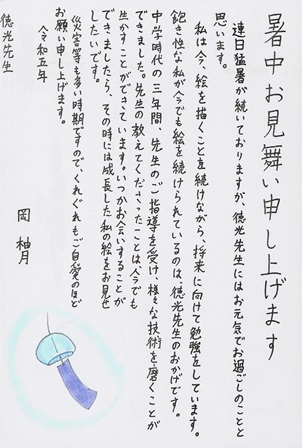 暑中お見舞い申し上げます
連日猛暑が続いておりますが、徳光先生にはお元気でお過ごしのことと
思います。
私は今、絵を描くことを続けながら、将来に向けて勉強をしています。
飽き性な私が今でも絵を続けられているのは、徳光先生のおかげです。
中学時代の三年間、先生のご指導を受け、様々な技術を磨くことが
できました。先生の教えてくださったことは今でも
生かすことができています。いつかお会いすることが
できましたら、その時には成長した私の絵をお見せ
したいです。
災害等も多い時期ですので、くれぐれもご自愛のほど
お願い申し上げます。
令和五年
岡 柚月
徳光先生